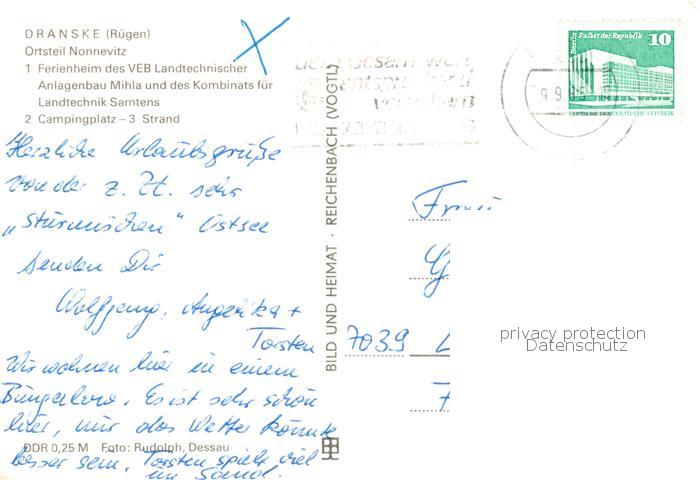 DRANSKE (Rügen)
Ortsteil Nonnevitz
1 Ferienheim des VEB Landtechnischer
Anlagenbau Mihla und des Kombinats für
Landtechnik Samtens
2 Campingplatz – 3 Strand
Herzliche Urlaubsgrüße
von der z. Zt. sehr
„stürmischen" Ostsee
senden Dir
Wolfgang, Angelika +
Torsten
Wir wohnen hier in einem
Bungalow. Es ist sehr schön
hier, nur das Wetter könnte
besser sein. Torsten spielt viel
im Sand.
DDR 0,25 M Foto: Rudolph, Dessau
BILD UND HEIMAT · REICHENBACH (VOGTL)
dem Gesamtwert
entsprechend
versichern
Berlin Palast der Republik 10
DEUTSCHE DEMOKRATISCHE REPUBLIK
Frau
7039 L
privacy protection
Datenschutz